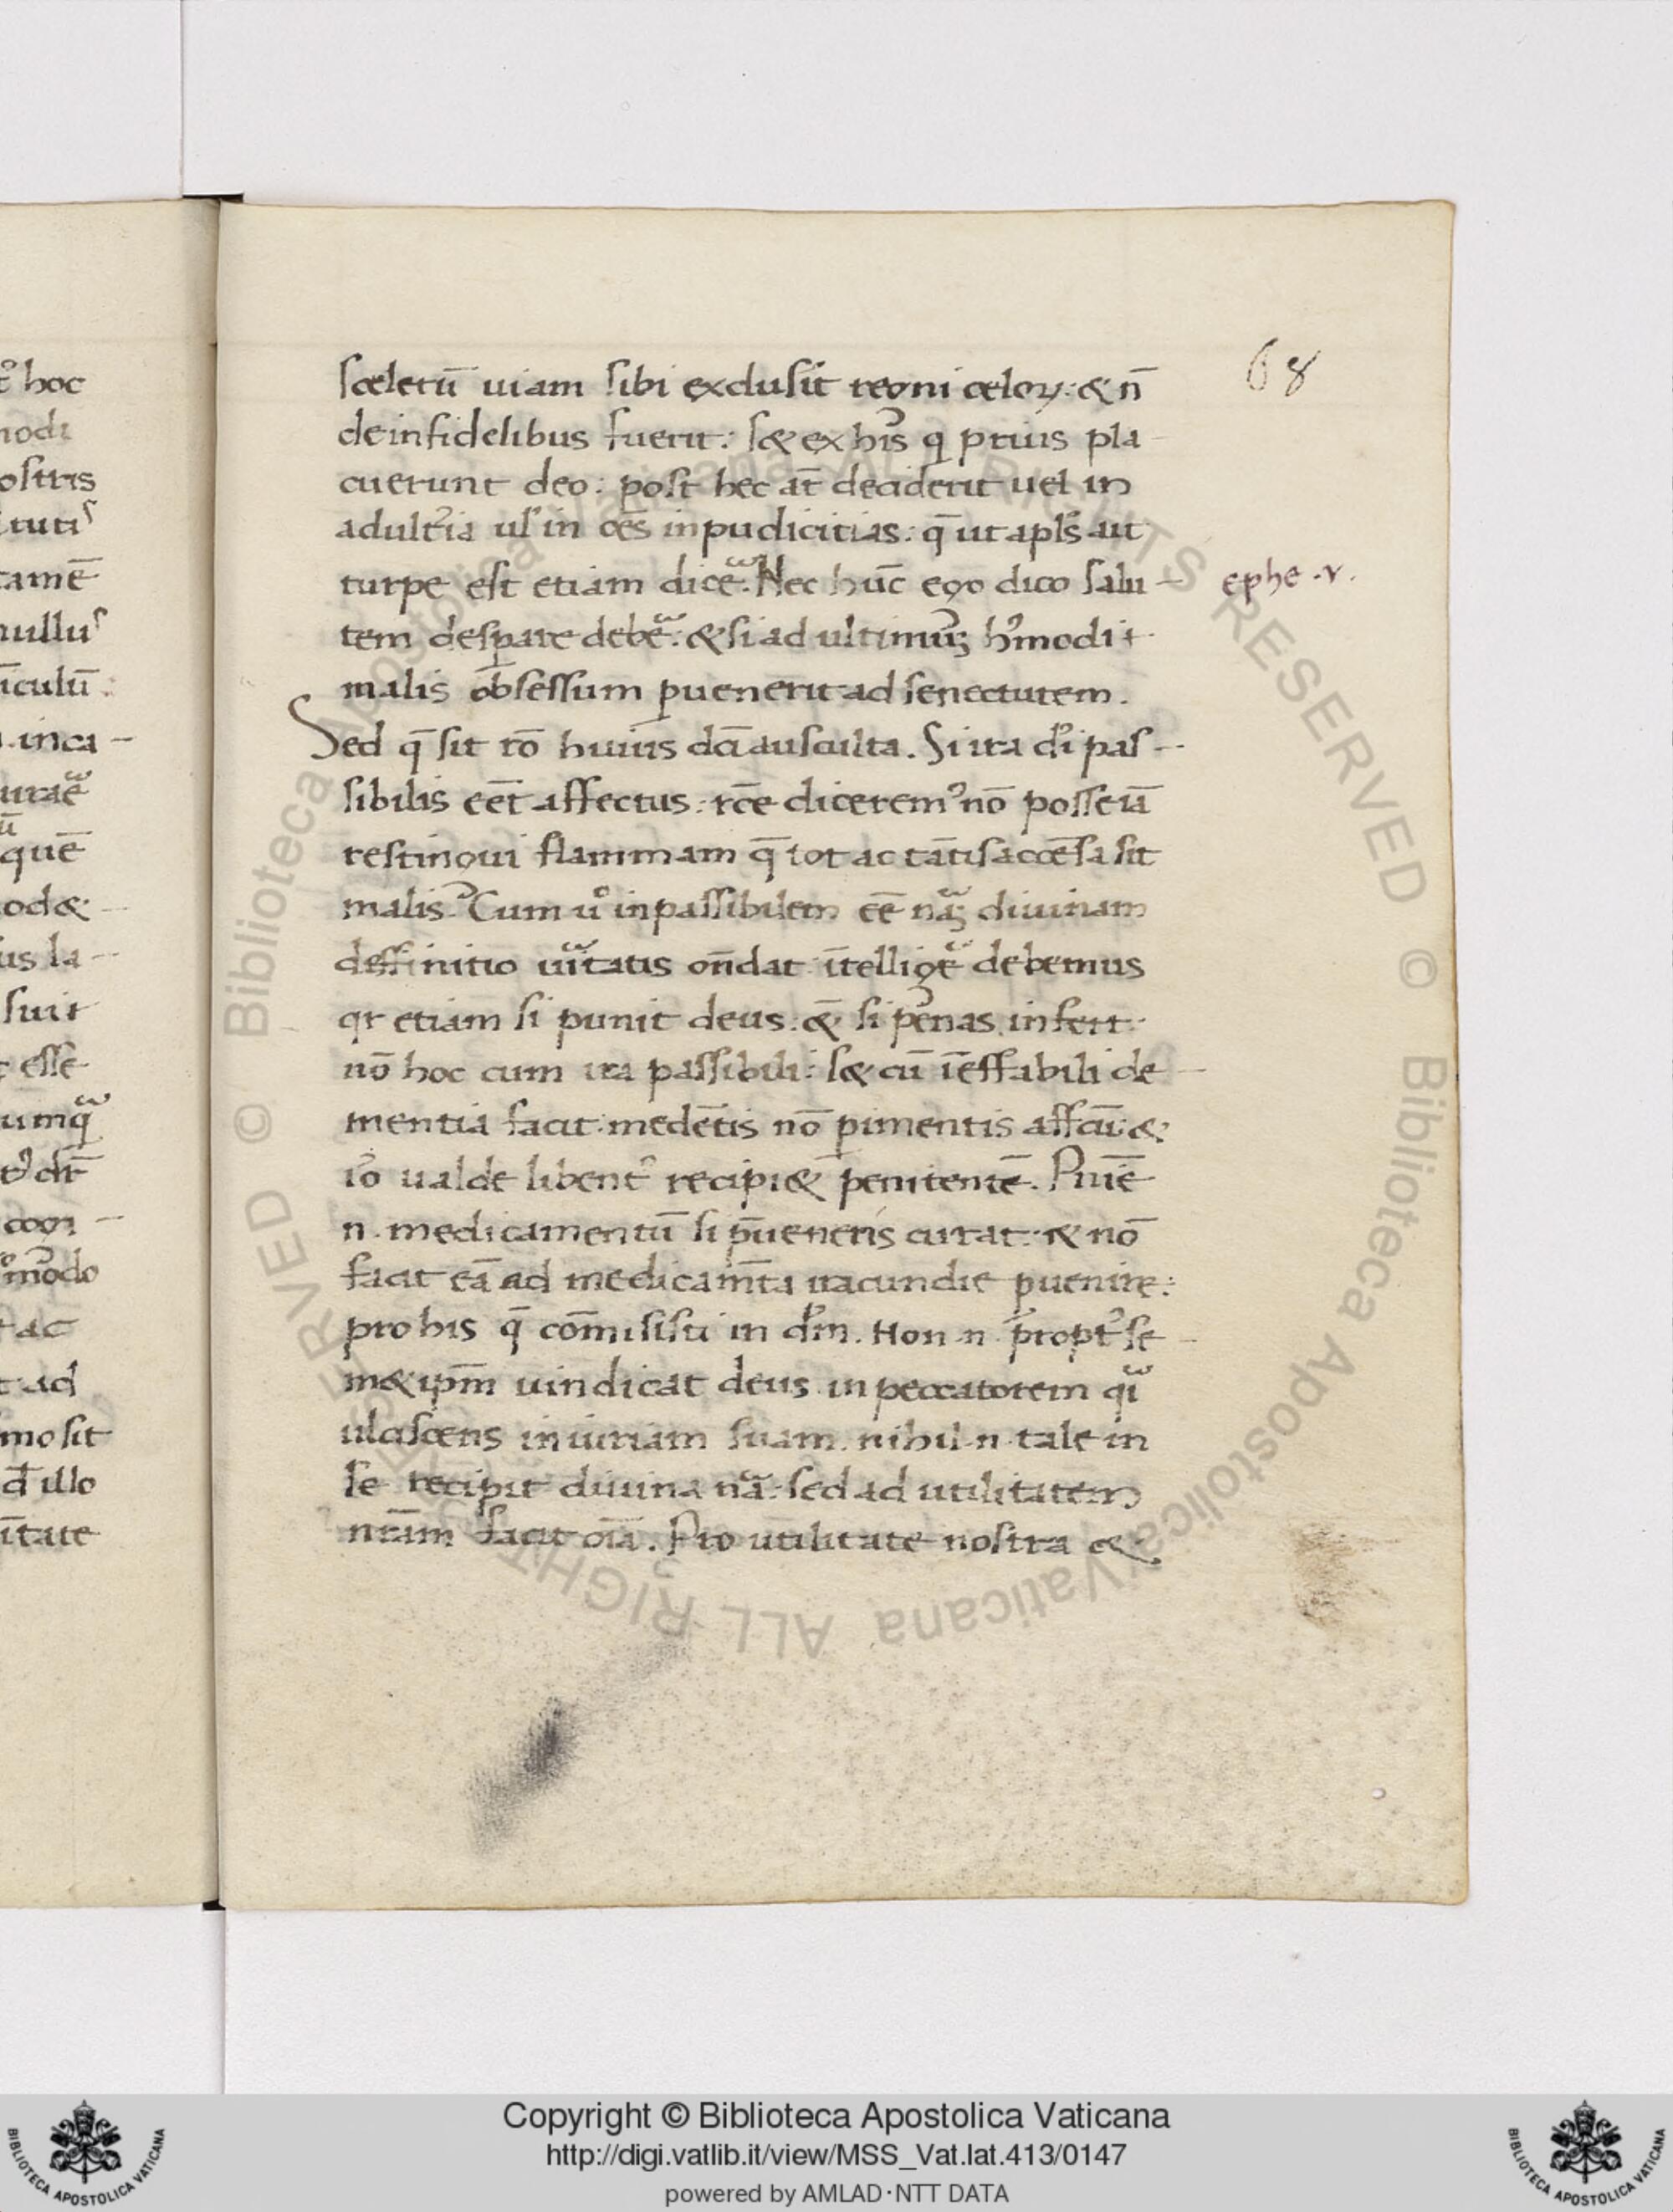 t᷒ hoc
modi
ostris
tuti
tamē
nullus
iculū
inca-
quē
od&
us la-
suit
esse
cogi-
modo
ac
ad
mo sit
d̄ illo
itate
68
scelerū uiam sibi exclusit regni celoꝝ: & n̄
de infidelibus fuerit: s& ex his q prius pla
cuerunt deo: post hec aūt deciderit uel in
adult'ia ul' in oēs inpudicitias: q̄ ut apl's ait
turpe est etiam dicē. Nec hūc ego dico salu-
ephe .v.
tem despare debē: & si ad ultimuꝫ h'modi
malis obsessum ꝑuenerit ad senectutem.
Sed q̄ sit rō huius dc̄i ausculta. Si ira di pas-
sibilis eēt affectus: rc̄e dicerem' nō posse iā
restingui flammam q̄ tot ac tātis accēsa sit
malis. Cum u° inpassibilem eē nāꝫ diuinam
deffinitio uitatis ondat: ītelligē debemus
qr etiam si punit deus: & si penas infert:
nō hoc cum ira passibili: s& cū īeffabili cle-
mentia facit: medētis nō pimentis affcū: &
iō ualde libent' recipi& penitentē. Puīe
n. medicamentū si p̄ueneris curat: & nō
facit eā ad medicam̄ta iracundie ꝑuenire:
pro his q̄ cōmisisti in dm̄. Non n. propt' se-
m& ipm̄ uindicat deus in peccatorem q̄i
ulciscens iniuriam suam. nihil n. tale in
se recipit diuina nā: sed ad utilitatem
nr̄am facit oīa. Pro utilitate nostra &
© Biblioteca Apostolica Vaticana ALL RIGHTS RESERVED © Biblioteca Apostolica Vaticana ALL RIGHTS RESERVED
Copyright © Biblioteca Apostolica Vaticana
http://digi.vatlib.it/view/MSS_Vat.lat.413/0147
powered by AMLAD·NTT DATA
BIBLIOTECA APOSTOLICA VATICANA
BIBLIOTECA APOSTOLICA VATICANA